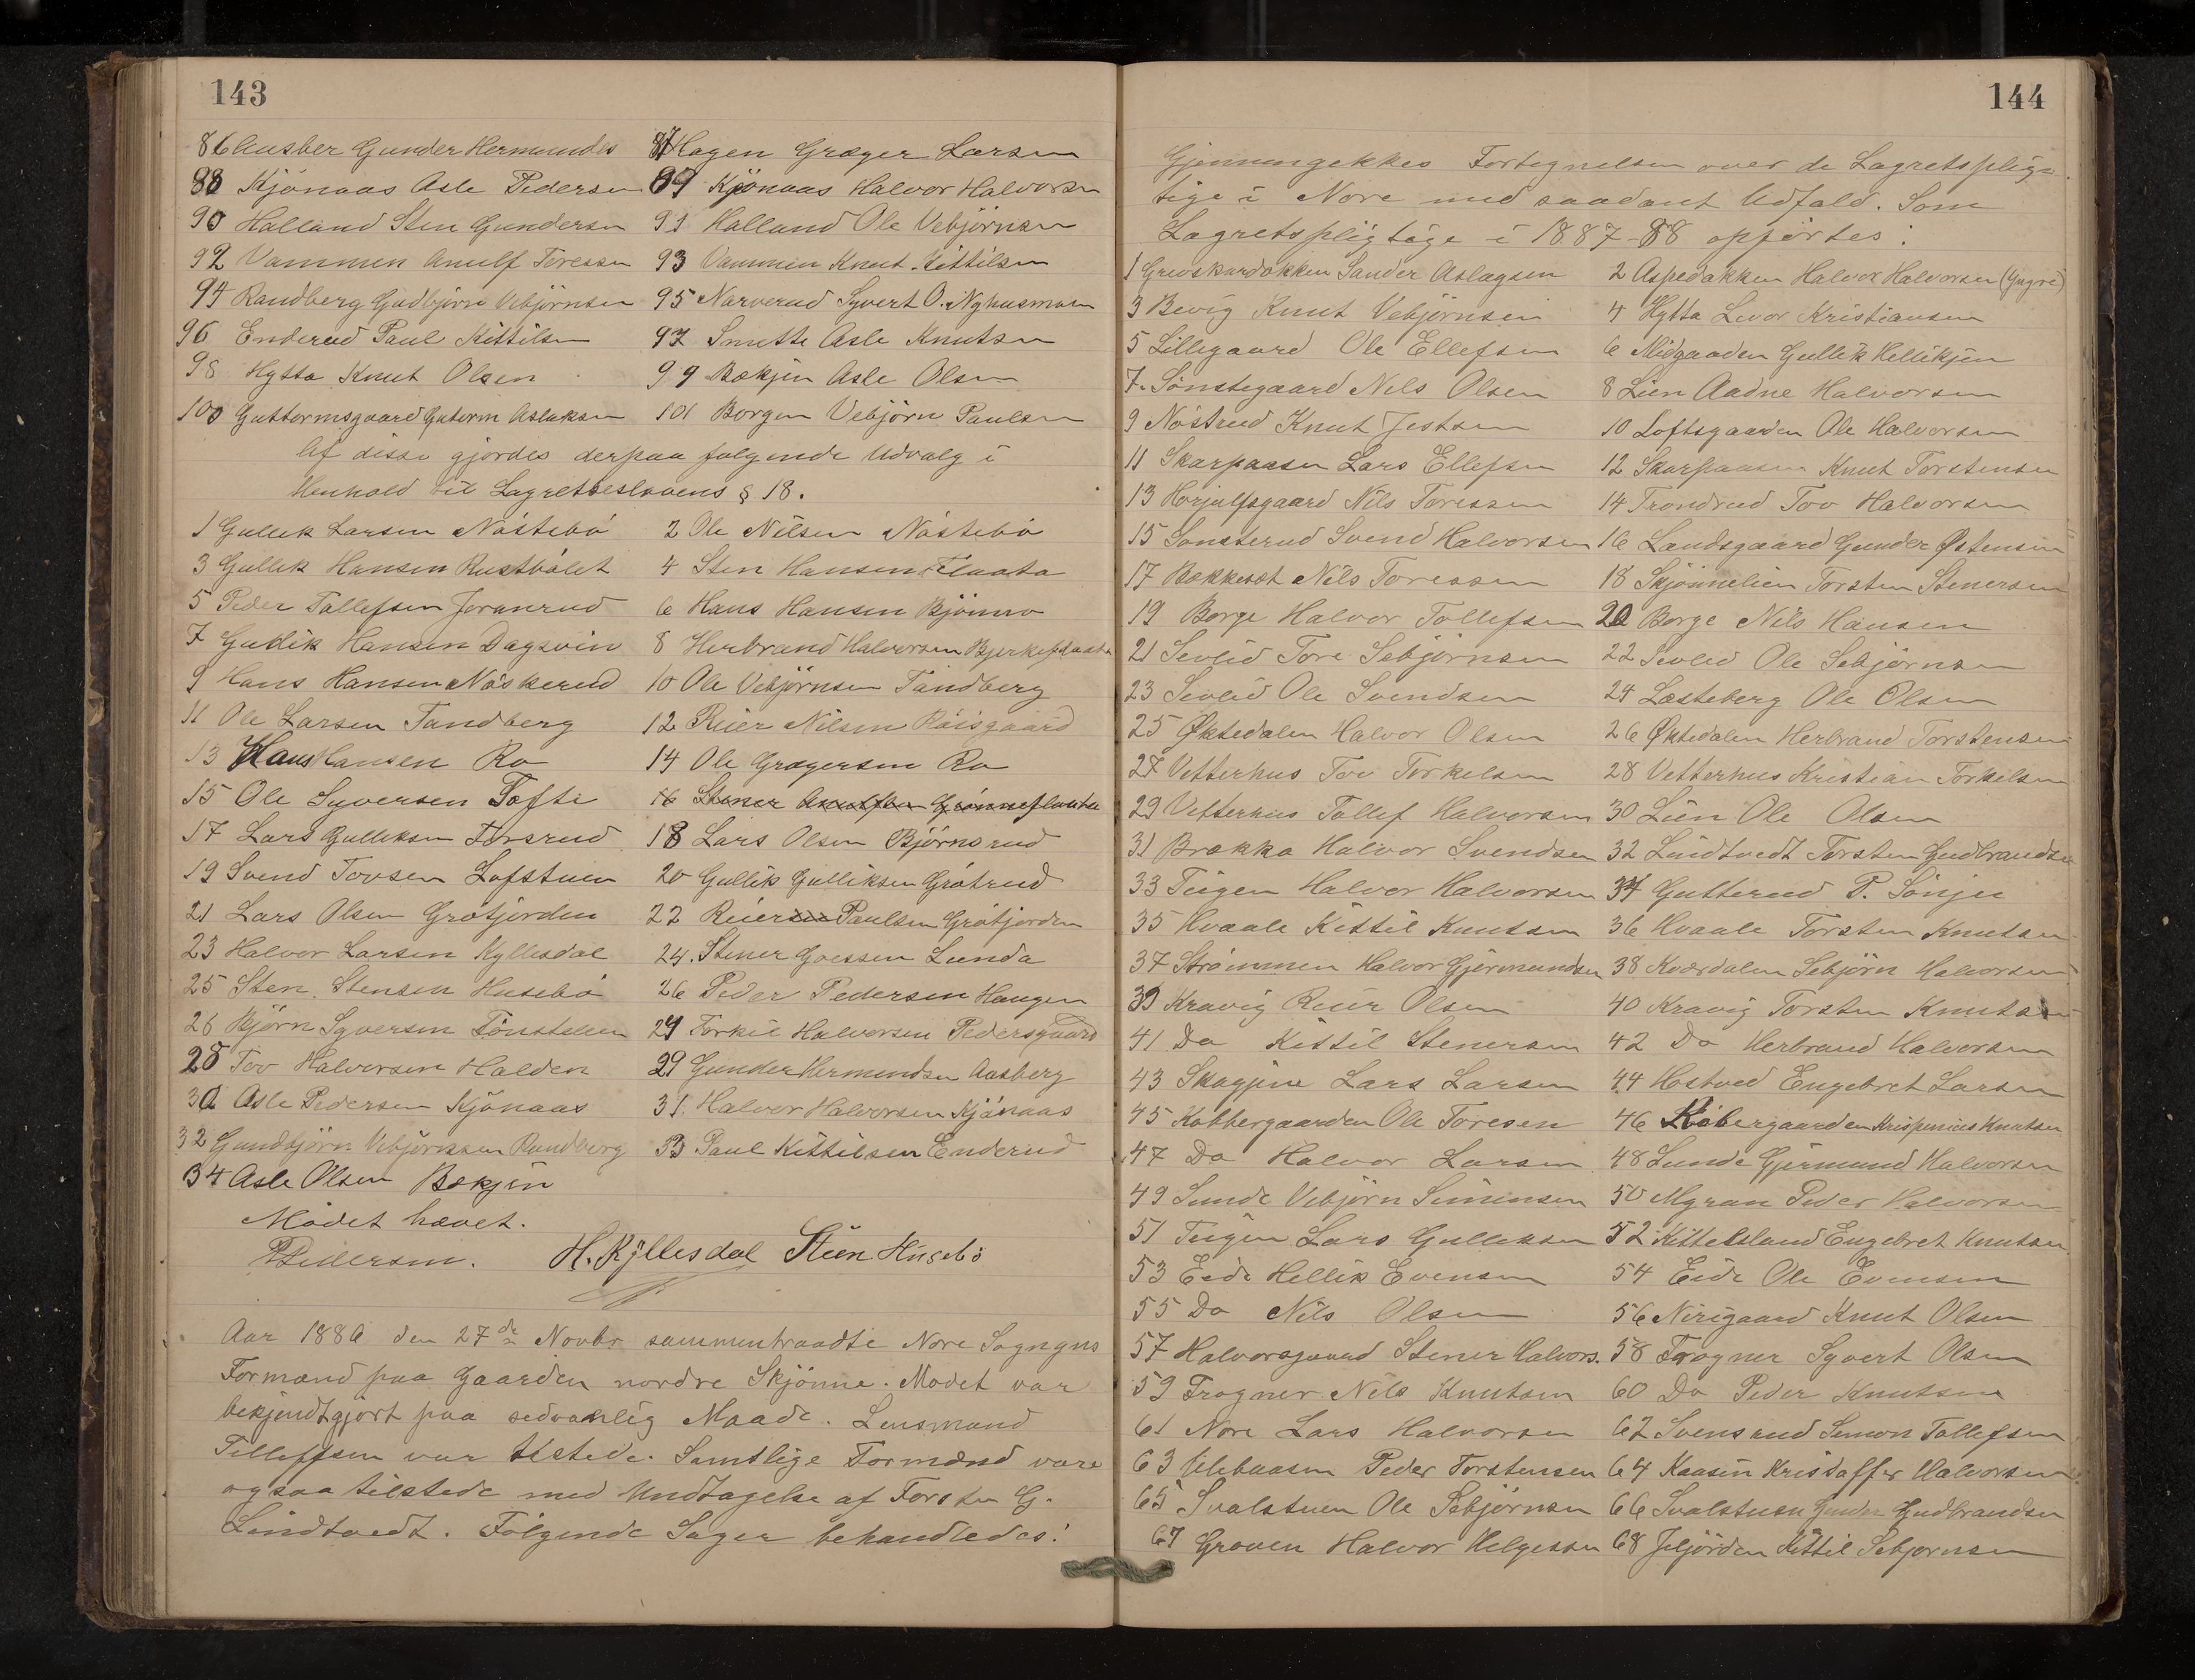 143
86 Aasber Gunder Hermundes 87 Hagen Græger Larsen
88 Kjönaas Asle Pedersen 89 Kjönaas Halvor Halvorsen
90 Halland Sten Gundersen 91 Halland Ole Vebjörnsen
92 Vammen Anulf Toressen 93 Vammen Knut Kittilsen
94 Randberg Gudbjörn Vebjörnsen 95 Narverud Syvert O. Nyhusmoen
96 Enderud Paul Kittilsen 97 Smette Asle Knutsen
98 Hytta Knut Olsen 99 Bækjin Asle Olsen
100 Guttormsgaard Gutorm Aslaksen 101 Borgen Vebjörn Paulsen
Af disse gjordes derpaa følgende Udvalg i
Henhold til Lagretteslovens § 18.
1 Gullik Larsen Nöstebö 2 Ole Nilsen Nöstebö
3 Gullik Hansen Rustbölet 4 Sten Hansen Flaata
5 Peder Tollefsen Joranrud 6 Hans Hansen Bjömro
7 Gullik Hansen Dagsvin 8 Herbrand Halvorsen Bjerkeflaata
9 Hans Hansen Nöskerud 10 Ole Vebjörnsen Tandberg
11 Ole Larsen Tandberg 12 Reier Nilsen Röisgaard
13 Hans Hansen Ro 14 Ole Grægersen Ro
15 Ole Syversen Tofte 16 Stener Anulfsen Grönneflaata
17 Lars Gulliksen Torsrud 18 Lars Olsen Björnsrud
19 Svend Tovsen Lofstuen 20 Gullik Gulliksen Grötrud
21 Lars Olsen Grötjorden 22 Reier Paulsen Grötjorden
23 Halvor Larsen Kyllesdal 24. Stener Goessen Lunda
25 Sten Stensen Husebö 26 Peder Pedersen Haugen
26 Björn Syversen Tönstelien 27 Torkil Halvorsen Pedersgaard
28 Tov Halvorsen Halden 29 Gunder Hermundsen Aasberg
30 Asle Pedersen Kjönaas 31. Halvor Halvorsen Kjönaas
32 Gundbjörn Vebjörnssen Randberg 33 Paul Kittilsen Enderud
34 Asle Olsen Bækjin
Mödet hævet.
Pedersen. H. Kyllesdal Steen Husebö
Aar 1886 den 27de Novbr sammentraadte Nore Sogngns
Formænd paa Gaarden nordre Skjönne. Mödet var
bekjendtgjort paa sedvanlig Maade. Lensmand
Tilleffsen var tilstede. Samtlige Formænd vare
ogsaa tilstede med Undtagelse af Torsten G.
Lindtvedt. Fölgende Sager behandledes:
144
Gjennemgikkes Fortegnelsen over de Lagretsplig-
tige i Nore med saadant Udfald. Som
Lagretspligtige i 1887-88 opförtes:
1 Grevskardokken Sander Aslagsen 2 Aspedokken Halvor Halvorsen (Yngre)
3 Bevig Knut Vebjörnsen 4 Hytta Levor Kristiansen
5 Lillegaard Ole Ellefsen 6 Midgaaden Gullik Hellikjen
7. Sönstegaard Nils Olsen 8 Lien Aadne Halvorsen
9 Nöstrud Knut Jostsen 10 Loftsgaarden Ole Halvorsen
11 Skarpaasen Lars Ellefsen 12 Skarpaasen Knut Torstensen
13 Horjulfsgaard Nils Toressen 14 Trondrud Tov Halvorsen
15 Sonsterud Svend Halvorsen 16 Landsgaard Gunder Østensen
17 Bækkesæt Nils Toressen 18 Skjönnelien Torsten Stenersen
19 Borge Halvor Tollefsen 20 Borge Nils Hansen
21 Sevlid Tore Sebjörnsen 22 Sevled Ole Sebjörnsen
23 Sevlid Ole Svendsen 24 Læsteberg Ole Olsen
25 Øktedalen Halvor Olsen 26 Øktedalen Herbrand Torstensen
27 Vetterhus Tov Torkelsen 28 Vetterhus Kristian Torkilsen
29 Vetterhus Tollef Halvorsen 30 Lien Ole Olsen
31 Brækka Halvor Svendsen 32 Lindtvedt Torsten Gudbrandsen
33 Teigen Halvor Halvorsen 34 Gutterud P. Sönju
35 Hvaale Kittil Knutsen 36 Hvaale Torsten Knutsen
37 Strömmen Halvor Gjermundsen 38 Kværdalen Sebjörn Halvorsen
39 Kravig Reier Olsen 40 Kravig Torsten Knutsen
41 Do Kittil Stenersen 42 Do Herbrand Halvorsen
43 Skagjine Lars Larsen 44 Hostved Engebret Larsen
45 Kobbergaarden Ole Toresen 46 Kobergaarden Krispinius Knutsen
47 Do Halvor Larsen 48 Lunde Gjermund Halvorsen
49 Lunde Vebjörn Simensen 50 Mgran Peder Halvorsen
51 Teigen Lars Gulliksen 52 Kittelsland Engebret Knutsen
53 Eide Hellik Evensen 54 Eide Ole Evensen
55 Do Nils Olsen 56 Nirigaard Knut Olsen
57 Halvorsgaard Stener Halvors. 58 Frogner Syvert Olsen
59 Frogner Nils Knutsen 60 Do Peder Knutsen
61 Nore Lars Halvorsen 62 Svensrud Simon Tollefsen
63 Ulebaasen Peder Torstensen 64 Kaasin Kristaffer Halvorsen
65 Svalstuen Ole Sebjörnsen 66 Svalstuen Gunder Gudbrandsen
67 Groven Halvor Helgesen 68 Jeljörden Kittil Sebjornsen